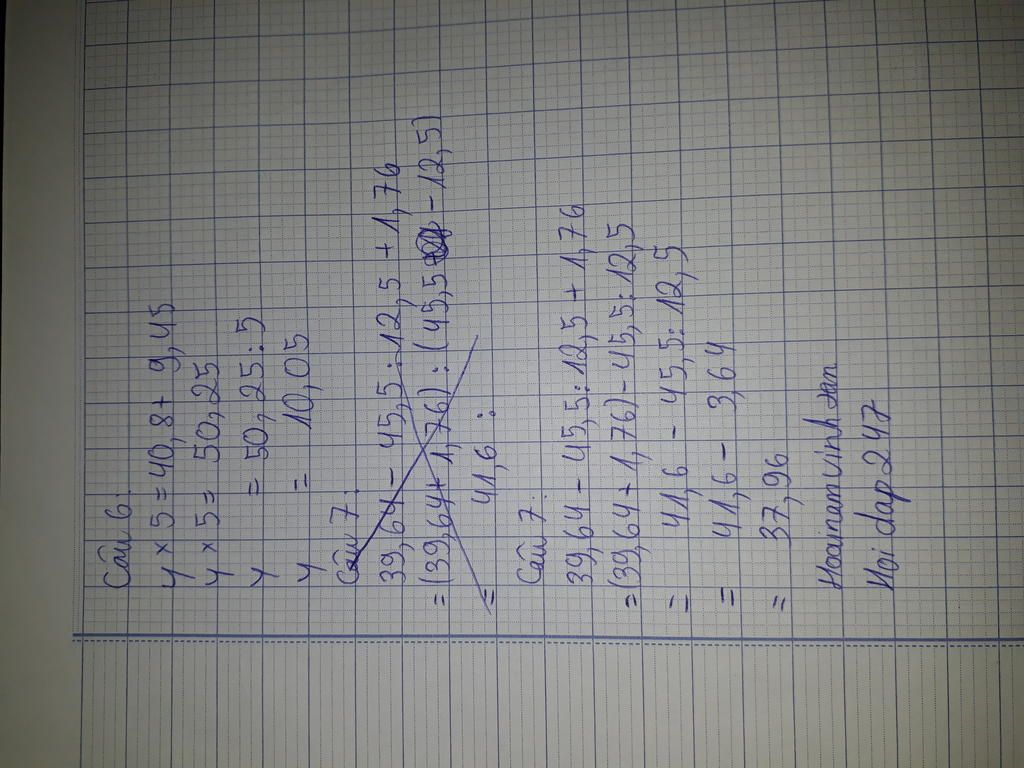 Câu 6:
y × 5 = 40,8 + 9,45
y × 5 = 50,25
y = 50,25 : 5
y = 10,05
Câu 7:
39,64 - 45,5 : 12,5 + 1,76
= (39,64 + 1,76) : (45,5 - 12,5)
= 41,6 :
Câu 7:
39,64 - 45,5 : 12,5 + 1,76
= (39,64 + 1,76) - 45,5 : 12,5
= 41,6 - 45,5 : 12,5
= 41,6 - 3,64
= 37,96
Hoainamvinh
Hoi dap 247